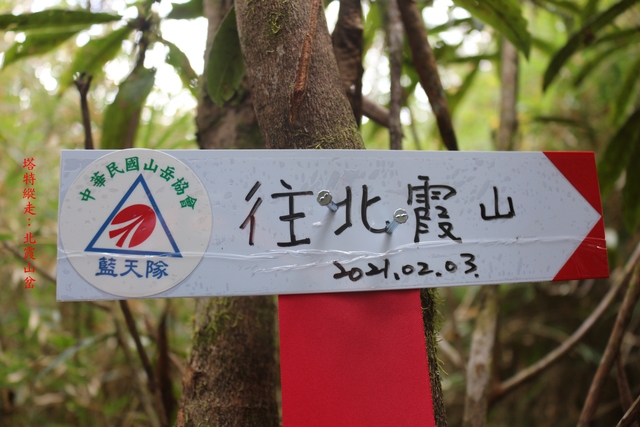 塔特縱走：北霞山岔
中華民國山岳協會
藍天隊
往北霞山
2021.02.03.